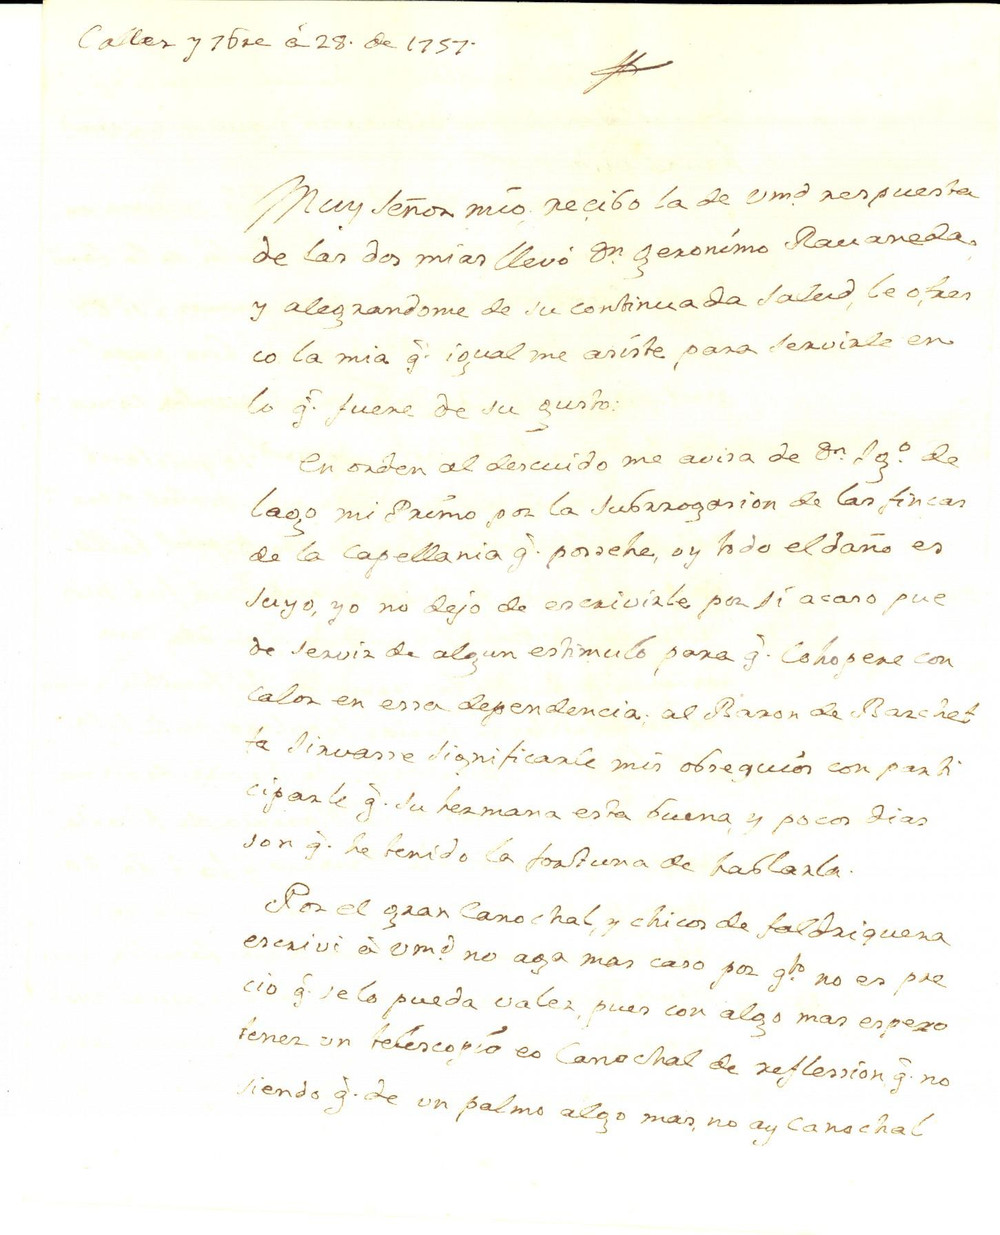 Caller y 7bre à 28. de 1757.
Muy Señor mio, recibo la de Vmd respuesta
de las dos mias llevó Dn. Geronimo Ravaneda,
y alegrandome de su continuada salud, le ofres
co la mia q̃. igual me asiste, para servirle en
lo q̃. fuere de su gusto:
En orden al descuido me avisa de Dn. Igo. de
lago mi Primo por la subrrogasion de las fincas
de la Capellania q̃. possehe, oy todo el daño es
suyo, yo no dejo de escrivirle por si acaso pue
de servir de algun estimulo para q̃. Cohopere con
calor en essa dependencia; al Baron de Barchet
ta sirvasse significarle mis obsequios con parti
ciparle q̃. su hermana esta buena, y pocos dias
son q̃. he tenido la fortuna de hablarla.
Por el gran Canochal, y chicos de faldriquera
escrivi à Vmd no aga mas caso por qto no es pre
cio q̃. se lo pueda valer, pues con algo mas espero
tener un telescopio eo Canochal de reflession q̃. no
siendo q̃. de un palmo algo mas, no ay Canochal